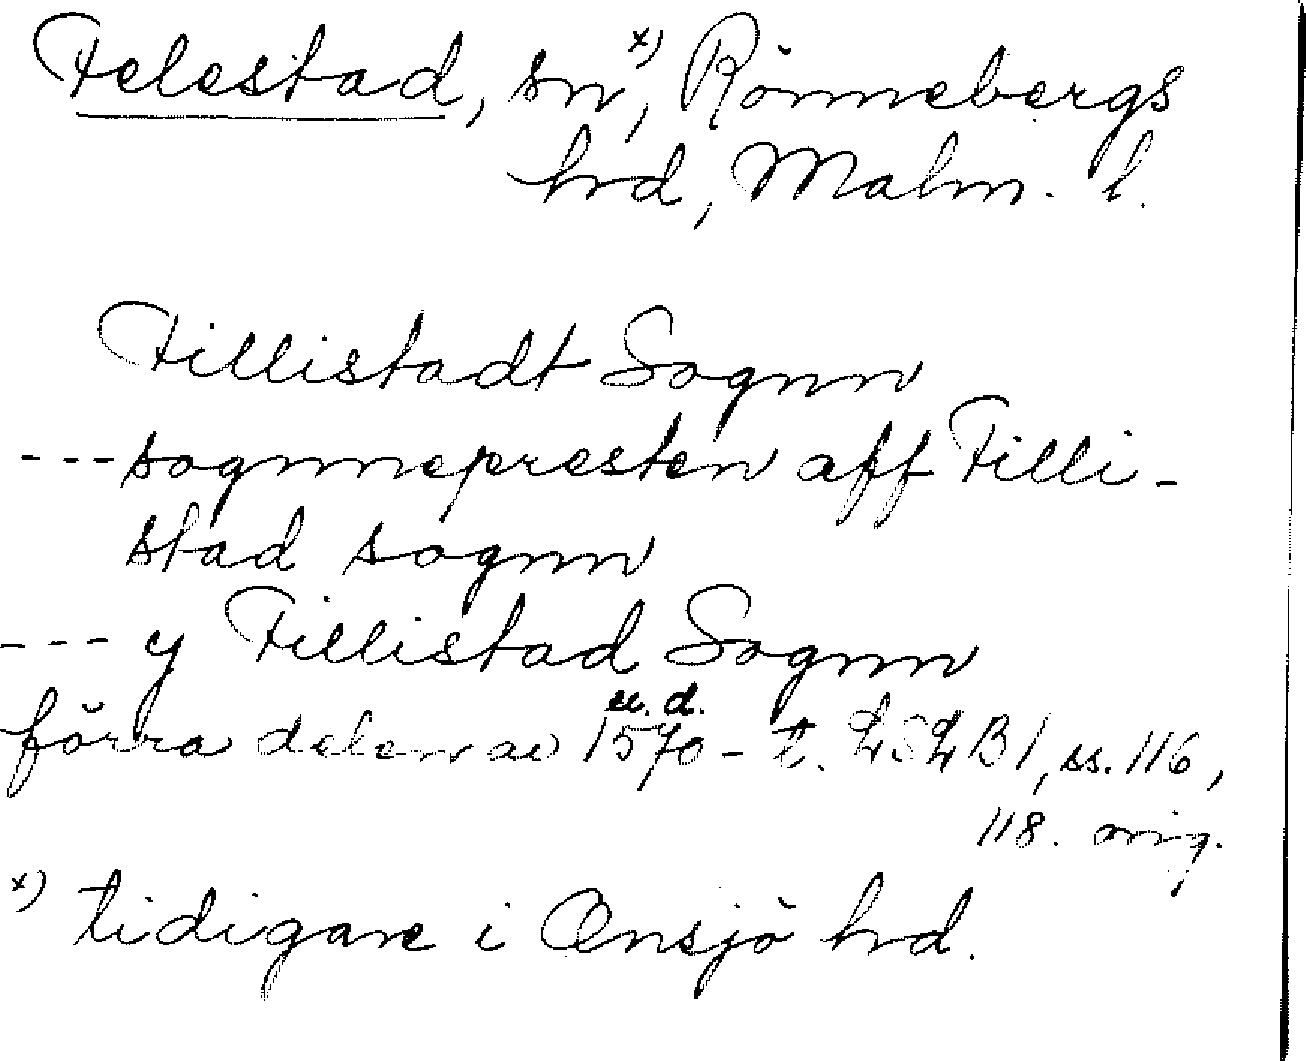 Felestad, sn x), Rönnebergs
hrd, Malm. l.
Fillistadt Sognn
--- sognnepresten aff Filli-
stad sognn
--- y Fillistad Sognn
u. d.
förra delen av 1570-t. LSLB1, ss. 116,
118. orig.
x) tidigare i Onsjö hrd.